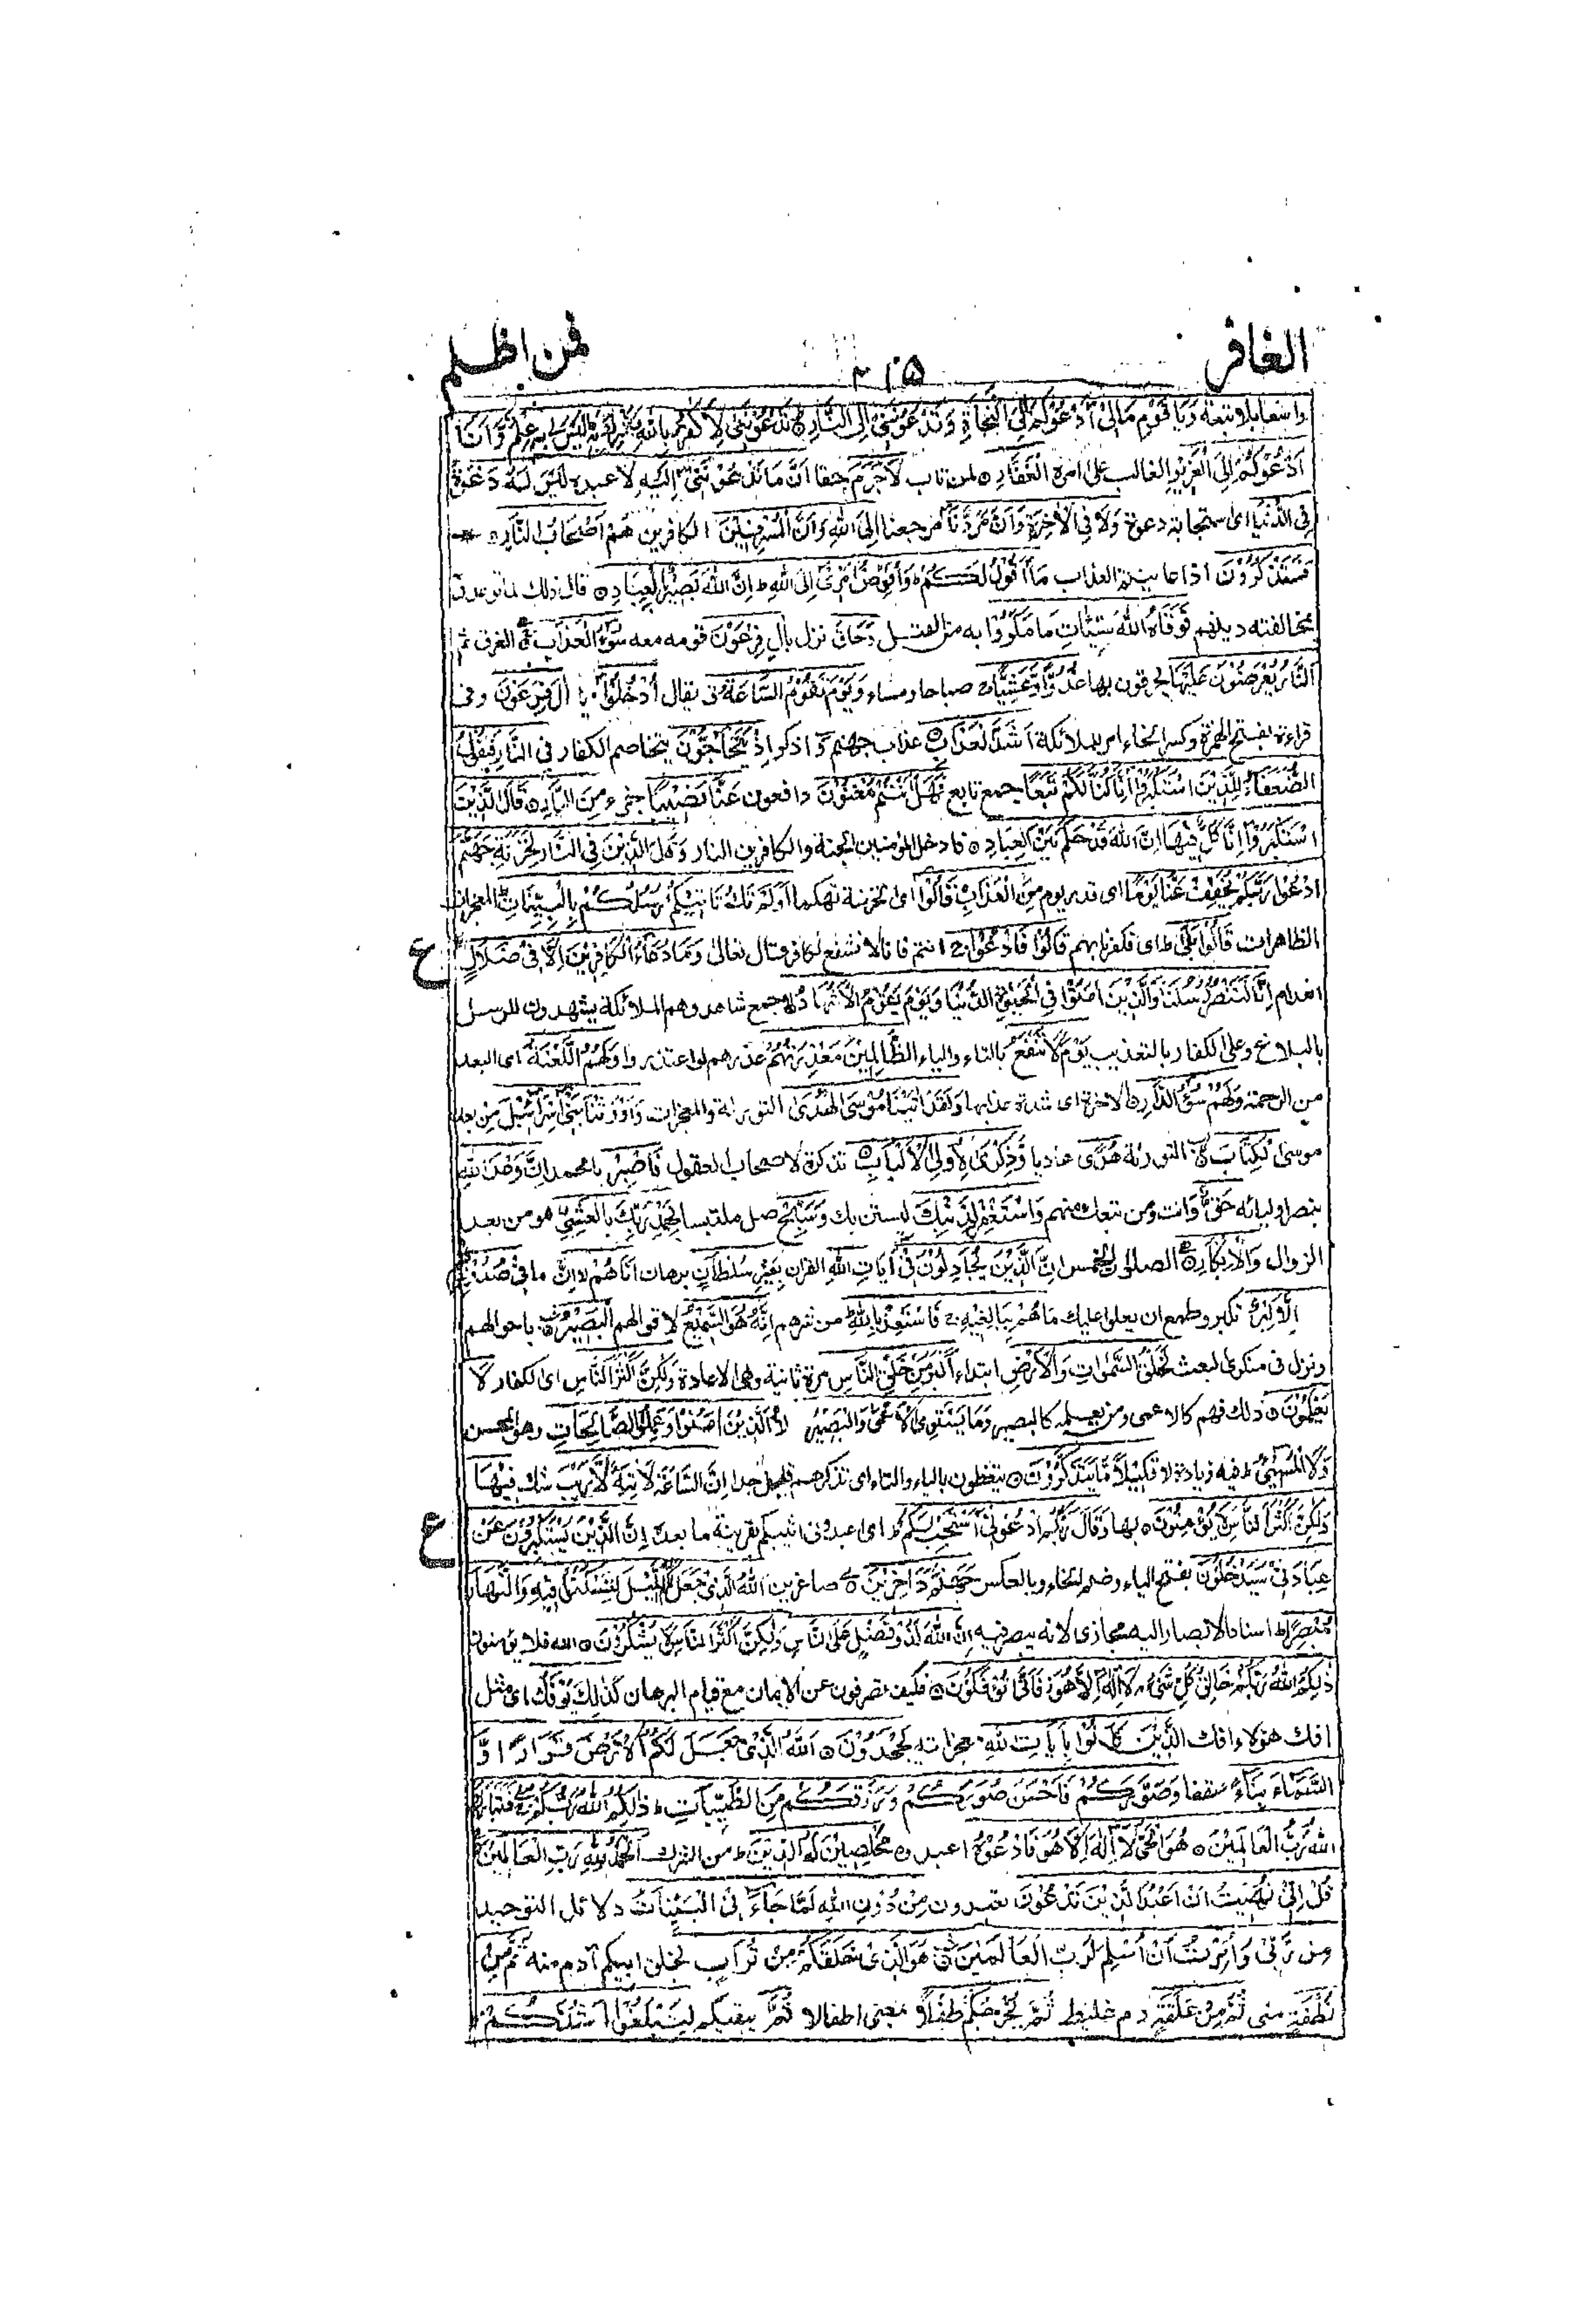 الغافر ٢١٥ فمن اظلم
واسعا بلا تبعة وَيَا قَوْمِ مَا لِيْ أَدْعُوْكُمْ إِلَى النَّجَاةِ وَتَدْعُوْنَنِيْ إِلَى النَّارِ ۝ تَدْعُوْنَنِيْ لِأَكْفُرَ بِاللهِ وَأُشْرِكَ بِهِ مَا لَيْسَ لِيْ بِهِ عِلْمٌ وَّأَنَا
أَدْعُوْكُمْ إِلَى الْعَزِيْزِ الغالب على امره الْغَفَّارِ ۝ لمن تاب لَاجَرَمَ حقا أَنَّ مَا تَدْعُوْنَنِيْ إِلَيْهِ لاعبده لَيْسَ لَهُ دَعْوَةٌ
فِي الدُّنْيَا اى استجابة دعوة وَلَا فِي الْآخِرَةِ وَأَنَّ مَرَدَّنَا مرجعنا إِلَى اللهِ وَأَنَّ الْمُسْرِفِيْنَ الكافرين هُمْ أَصْحَابُ النَّارِ ۝
فَسَتَذْكُرُوْنَ اذا عاينتم العذاب مَا أَقُوْلُ لَكُمْ وَأُفَوِّضُ أَمْرِيْ إِلَى اللهِ ط إِنَّ اللهَ بَصِيْرٌ بِالْعِبَادِ ۝ قال ذلك لما توعدوه
بمخالفته دينهم فَوَقَاهُ اللهُ سَيِّئَاتِ مَا مَكَرُوْا به من القتل وَحَاقَ نزل بِآلِ فِرْعَوْنَ قومه معه سُوْءُ الْعَذَابِ الغرق ثم
النَّارُ يُعْرَضُوْنَ عَلَيْهَا يحرقون بها غُدُوًّا وَّعَشِيًّا صباحا ومساء وَيَوْمَ تَقُوْمُ السَّاعَةُ يقال أَدْخِلُوْا يا آلَ فِرْعَوْنَ وفى
قراءة بفتح الهمزة وكسر الخاء امر للملائكة أَشَدَّ الْعَذَابِ عذاب جهنم وَ اذكر إِذْ يَتَحَاجُّوْنَ يتخاصم الكفار فِي النَّارِ فَيَقُوْلُ
الضُّعَفَاءُ لِلَّذِيْنَ اسْتَكْبَرُوْا إِنَّا كُنَّا لَكُمْ تَبَعًا جمع تابع فَهَلْ أَنْتُمْ مُغْنُوْنَ دافعون عَنَّا نَصِيْبًا جزء مِنَ النَّارِ ۝ قَالَ الَّذِيْنَ
اسْتَكْبَرُوْا إِنَّا كُلٌّ فِيْهَا إِنَّ اللهَ قَدْ حَكَمَ بَيْنَ الْعِبَادِ ۝ فادخل المؤمنين الجنة والكافرين النار وَقَالَ الَّذِيْنَ فِي النَّارِ لِخَزَنَةِ جَهَنَّمَ
ادْعُوْا رَبَّكُمْ يُخَفِّفْ عَنَّا يَوْمًا اى قدر يوم مِنَ الْعَذَابِ قَالُوْا اى الخزنة تهكما أَوَلَمْ تَكُ تَأْتِيْكُمْ رُسُلُكُمْ بِالْبَيِّنَاتِ المعجزات
الظاهرات قَالُوْا بَلَى ط اى فكفرنا بهم قَالُوْا فَادْعُوْا انتم فانا لا نشفع لكافر قال تعالى وَمَا دُعَاءُ الْكَافِرِيْنَ إِلَّا فِيْ ضَلَالٍ
ع
انعدام إِنَّا لَنَنْصُرُ رُسُلَنَا وَالَّذِيْنَ آمَنُوْا فِي الْحَيٰوةِ الدُّنْيَا وَيَوْمَ يَقُوْمُ الْأَشْهَادُ جمع شاهد وهم الملائكة يشهدون للرسل
بالبلاغ وعلى الكفار بالتعذيب يَوْمَ لَا تَنْفَعُ بالتاء والياء الظَّالِمِيْنَ مَعْذِرَتُهُمْ عذرهم لو اعتذروا وَلَهُمُ اللَّعْنَةُ اى البعد
من الرحمة وَلَهُمْ سُوْءُ الدَّارِ الاخرة اى شدة عذابها وَلَقَدْ آتَيْنَا مُوْسَى الْهُدَى التورىة والمعجزات وَأَوْرَثْنَا بَنِيْ إِسْرَائِيْلَ من بعد
موسى الْكِتَابَ التورىة هُدًى هاديا وَّذِكْرَى لِأُولِي الْأَلْبَابِ ۝ تذكرة لاصحاب العقول فَاصْبِرْ يا محمد إِنَّ وَعْدَ اللهِ
بنصر اوليائه حَقٌّ وانت ومن تبعك منهم وَاسْتَغْفِرْ لِذَنْبِكَ ليستن بك وَسَبِّحْ صل ملتبسا بِحَمْدِ رَبِّكَ بِالْعَشِيِّ هو من بعد
الزوال وَالْإِبْكَارِ الصلوات الخمس إِنَّ الَّذِيْنَ يُجَادِلُوْنَ فِيْ آيَاتِ اللهِ القران بِغَيْرِ سُلْطَانٍ برهان أَتَاهُمْ إِنْ ما فِيْ صُدُوْرِهِمْ
إِلَّا كِبْرٌ تكبر وطمع ان يعلوا عليك مَا هُمْ بِبَالِغِيْهِ فَاسْتَعِذْ بِاللهِ من شرهم إِنَّهُ هُوَ السَّمِيْعُ لاقوالهم الْبَصِيْرُ باحوالهم
ونزل فى منكرى البعث لَخَلْقُ السَّمٰوَاتِ وَالْأَرْضِ ابتداء أَكْبَرُ مِنْ خَلْقِ النَّاسِ مرة ثانية وهى الاعادة وَلَكِنَّ أَكْثَرَ النَّاسِ اى الكفار لَا
يَعْلَمُوْنَ ۝ ذلك فهم كالاعمى ومن يعلمه كالبصير وَمَا يَسْتَوِي الْأَعْمَى وَالْبَصِيْرُ لا وَالَّذِيْنَ آمَنُوْا وَعَمِلُوا الصَّالِحَاتِ وهو المحسن
وَلَا الْمُسِيْءُ ط فيه زيادة لا قَلِيْلًا مَّا يَتَذَكَّرُوْنَ ۝ يتعظون بالياء والتاء اى تذكرهم قليل جدا إِنَّ السَّاعَةَ لَآتِيَةٌ لَّا رَيْبَ شك فِيْهَا
وَلَكِنَّ أَكْثَرَ النَّاسِ لَا يُؤْمِنُوْنَ ۝ بها وَقَالَ رَبُّكُمُ ادْعُوْنِيْ أَسْتَجِبْ لَكُمْ ط اى اعبدونى اثبكم بقرينة ما بعده إِنَّ الَّذِيْنَ يَسْتَكْبِرُوْنَ عَنْ
ع
عِبَادَتِيْ سَيَدْخُلُوْنَ بفتح الياء وضم الخاء وبالعكس جَهَنَّمَ دَاخِرِيْنَ ۝ صاغرين اَللهُ الَّذِيْ جَعَلَ لَكُمُ اللَّيْلَ لِتَسْكُنُوْا فِيْهِ وَالنَّهَارَ
مُبْصِرًا ط اسناد الابصار اليه مجازى لانه يبصر فيه إِنَّ اللهَ لَذُوْ فَضْلٍ عَلَى النَّاسِ وَلَكِنَّ أَكْثَرَ النَّاسِ لَا يَشْكُرُوْنَ ۝ الله فلا يؤمنون
ذٰلِكُمُ اللهُ رَبُّكُمْ خَالِقُ كُلِّ شَيْءٍ لَا إِلٰهَ إِلَّا هُوَ فَأَنَّى تُؤْفَكُوْنَ ۝ فكيف تصرفون عن الايمان مع قيام البرهان كَذٰلِكَ يُؤْفَكُ اى مثل
افك هؤلاء افك الَّذِيْنَ كَانُوْا بِآيَاتِ اللهِ معجزاته يَجْحَدُوْنَ ۝ اَللهُ الَّذِيْ جَعَلَ لَكُمُ الْأَرْضَ قَرَارًا وَّ
السَّمَاءَ بِنَاءً سقفا وَصَوَّرَكُمْ فَأَحْسَنَ صُوَرَكُمْ وَرَزَقَكُمْ مِنَ الطَّيِّبَاتِ ط ذٰلِكُمُ اللهُ رَبُّكُمْ فَتَبَارَكَ
اللهُ رَبُّ الْعَالَمِيْنَ ۝ هُوَ الْحَيُّ لَا إِلٰهَ إِلَّا هُوَ فَادْعُوْهُ اعبدوه مُخْلِصِيْنَ لَهُ الدِّيْنَ ط من الشرك اَلْحَمْدُ لِلهِ رَبِّ الْعَالَمِيْنَ
قُلْ إِنِّيْ نُهِيْتُ أَنْ أَعْبُدَ الَّذِيْنَ تَدْعُوْنَ تعبدون مِنْ دُوْنِ اللهِ لَمَّا جَاءَنِيَ الْبَيِّنَاتُ دلائل التوحيد
مِنْ رَّبِّيْ وَأُمِرْتُ أَنْ أُسْلِمَ لِرَبِّ الْعَالَمِيْنَ ۝ هُوَ الَّذِيْ خَلَقَكُمْ مِنْ تُرَابٍ بخلق ابيكم آدم منه ثُمَّ مِنْ
نُطْفَةٍ منى ثُمَّ مِنْ عَلَقَةٍ دم غليظ ثُمَّ يُخْرِجُكُمْ طِفْلًا بمعنى اطفالا ثُمَّ يبقيكم لِتَبْلُغُوْا أَشُدَّكُمْ